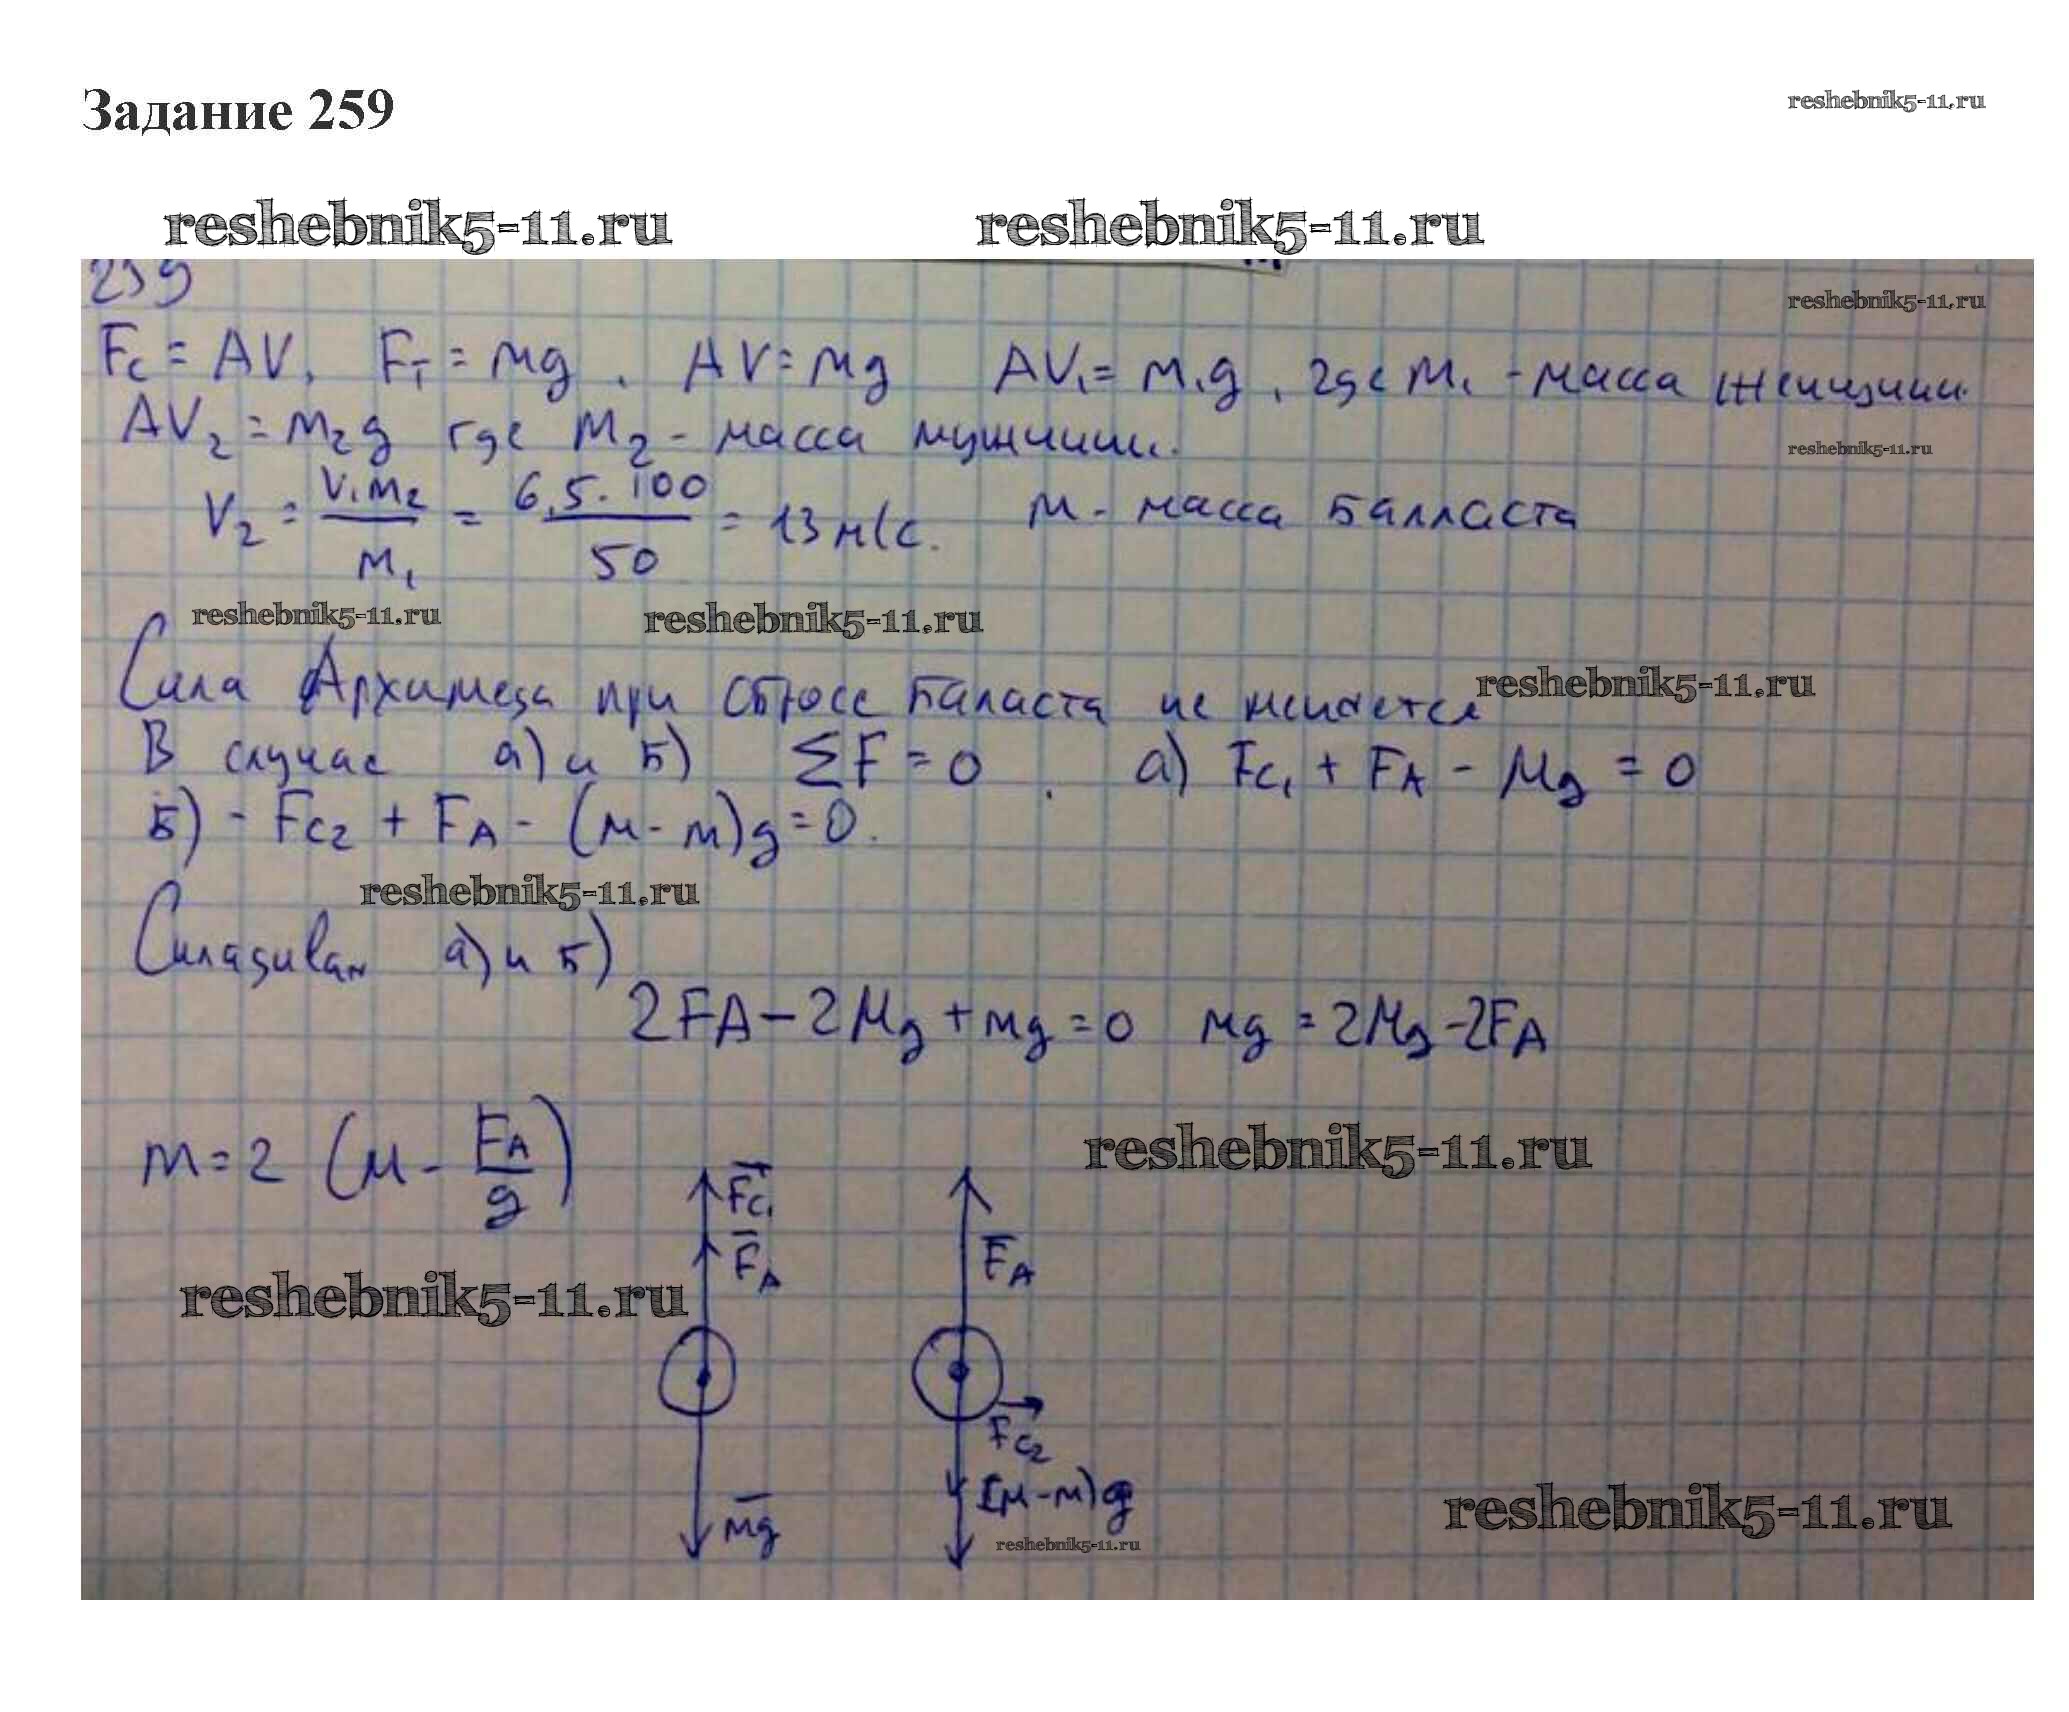 Задание 259
reshebnik5-11.ru
reshebnik5-11.ru reshebnik5-11.ru
259
reshebnik5-11.ru
Fc = AV, Fт = mg. AV = mg AV₁ = m₁g, где m₁ - масса женщины.
AV₂ = m₂g где m₂ - масса мужчины.
reshebnik5-11.ru
V₂ = V₁m₂/m₁ = 6,5·100/50 = 13 м/с. m - масса балласта
reshebnik5-11.ru reshebnik5-11.ru
Сила Архимеда при сбросе баласта не меняется
reshebnik5-11.ru
В случае а) и б) ΣF = 0. а) Fc₁ + FA - Mg = 0
б) - Fc₂ + FA - (M - m)g = 0.
reshebnik5-11.ru
Складывам а) и б)
2FA - 2Mg + mg = 0 mg = 2Mg - 2FA
reshebnik5-11.ru
m = 2 (M - FA/g)
Fc₁
FA FA
reshebnik5-11.ru
Fc₂
(M-m)g
Mg
reshebnik5-11.ru
reshebnik5-11.ru